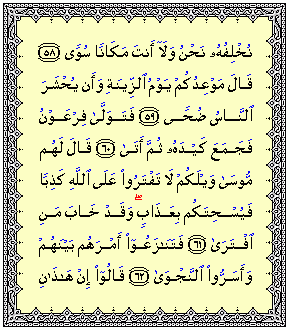 نُخْلِفُهُۥ نَحْنُ وَلَآ أَنتَ مَكَانًا سُوًى ﴿٥٨﴾
قَالَ مَوْعِدُكُمْ يَوْمُ ٱلزِّينَةِ وَأَن يُحْشَرَ
ٱلنَّاسُ ضُحًى ﴿٥٩﴾ فَتَوَلَّىٰ فِرْعَوْنُ
فَجَمَعَ كَيْدَهُۥ ثُمَّ أَتَىٰ ﴿٦٠﴾ قَالَ لَهُم
مُّوسَىٰ وَيْلَكُمْ لَا تَفْتَرُوا۟ عَلَى ٱللَّهِ كَذِبًا
فَيُسْحِتَكُم بِعَذَابٍ ۖ وَقَدْ خَابَ مَنِ
ٱفْتَرَىٰ ﴿٦١﴾ فَتَنَٰزَعُوٓا۟ أَمْرَهُم بَيْنَهُمْ
وَأَسَرُّوا۟ ٱلنَّجْوَىٰ ﴿٦٢﴾ قَالُوٓا۟ إِنْ هَٰذَٰنِ